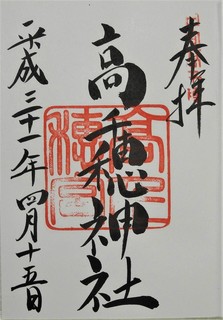 奉拝
高千穂神社
平成三十一年四月十五日